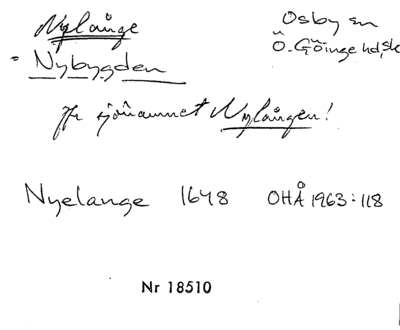 Nylånge
Osby sn
= Nybygden
Ö. Göinge hd, sk
Jfr sjönamnet Nylången!
Nyelange 1648 OHÅ 1963:118
Nr 18510